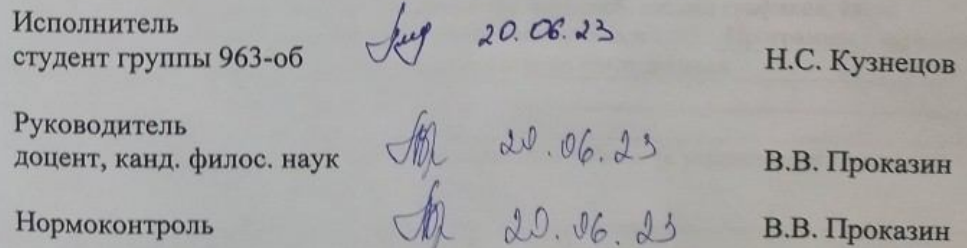 Исполнитель
студент группы 963-об 20.06.23 Н.С. Кузнецов
Руководитель
доцент, канд. филос. наук 20.06.23 В.В. Проказин
Нормоконтроль 20.06.23 В.В. Проказин